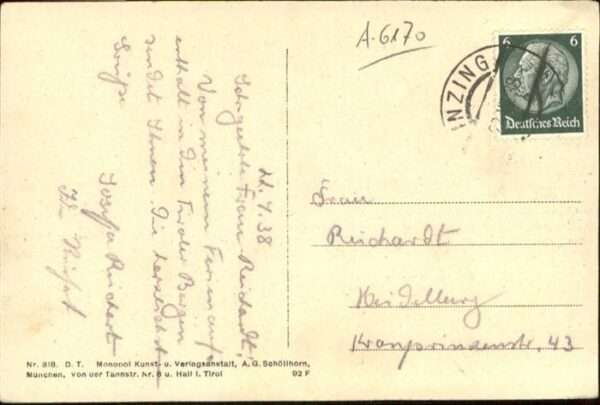 A-6170
INZING
6 6
Deutsches Reich
22.7.38
Sehrgeehrte Frau Reichardt,
Von meinem Ferienauf-
enthalt in den Tiroler Bergen
sendet Ihnen die herzlichsten
Grüße
Josefa Reichert
Frau
Reichardt
Heidelberg
Kronprinzenstr. 43
Nr. 818. D. T. Monopol Kunst- u. Verlagsanstalt, A. G. Schöllhorn,
München, von der Tannstr. Nr. 8 u. Hall i. Tirol 92 F